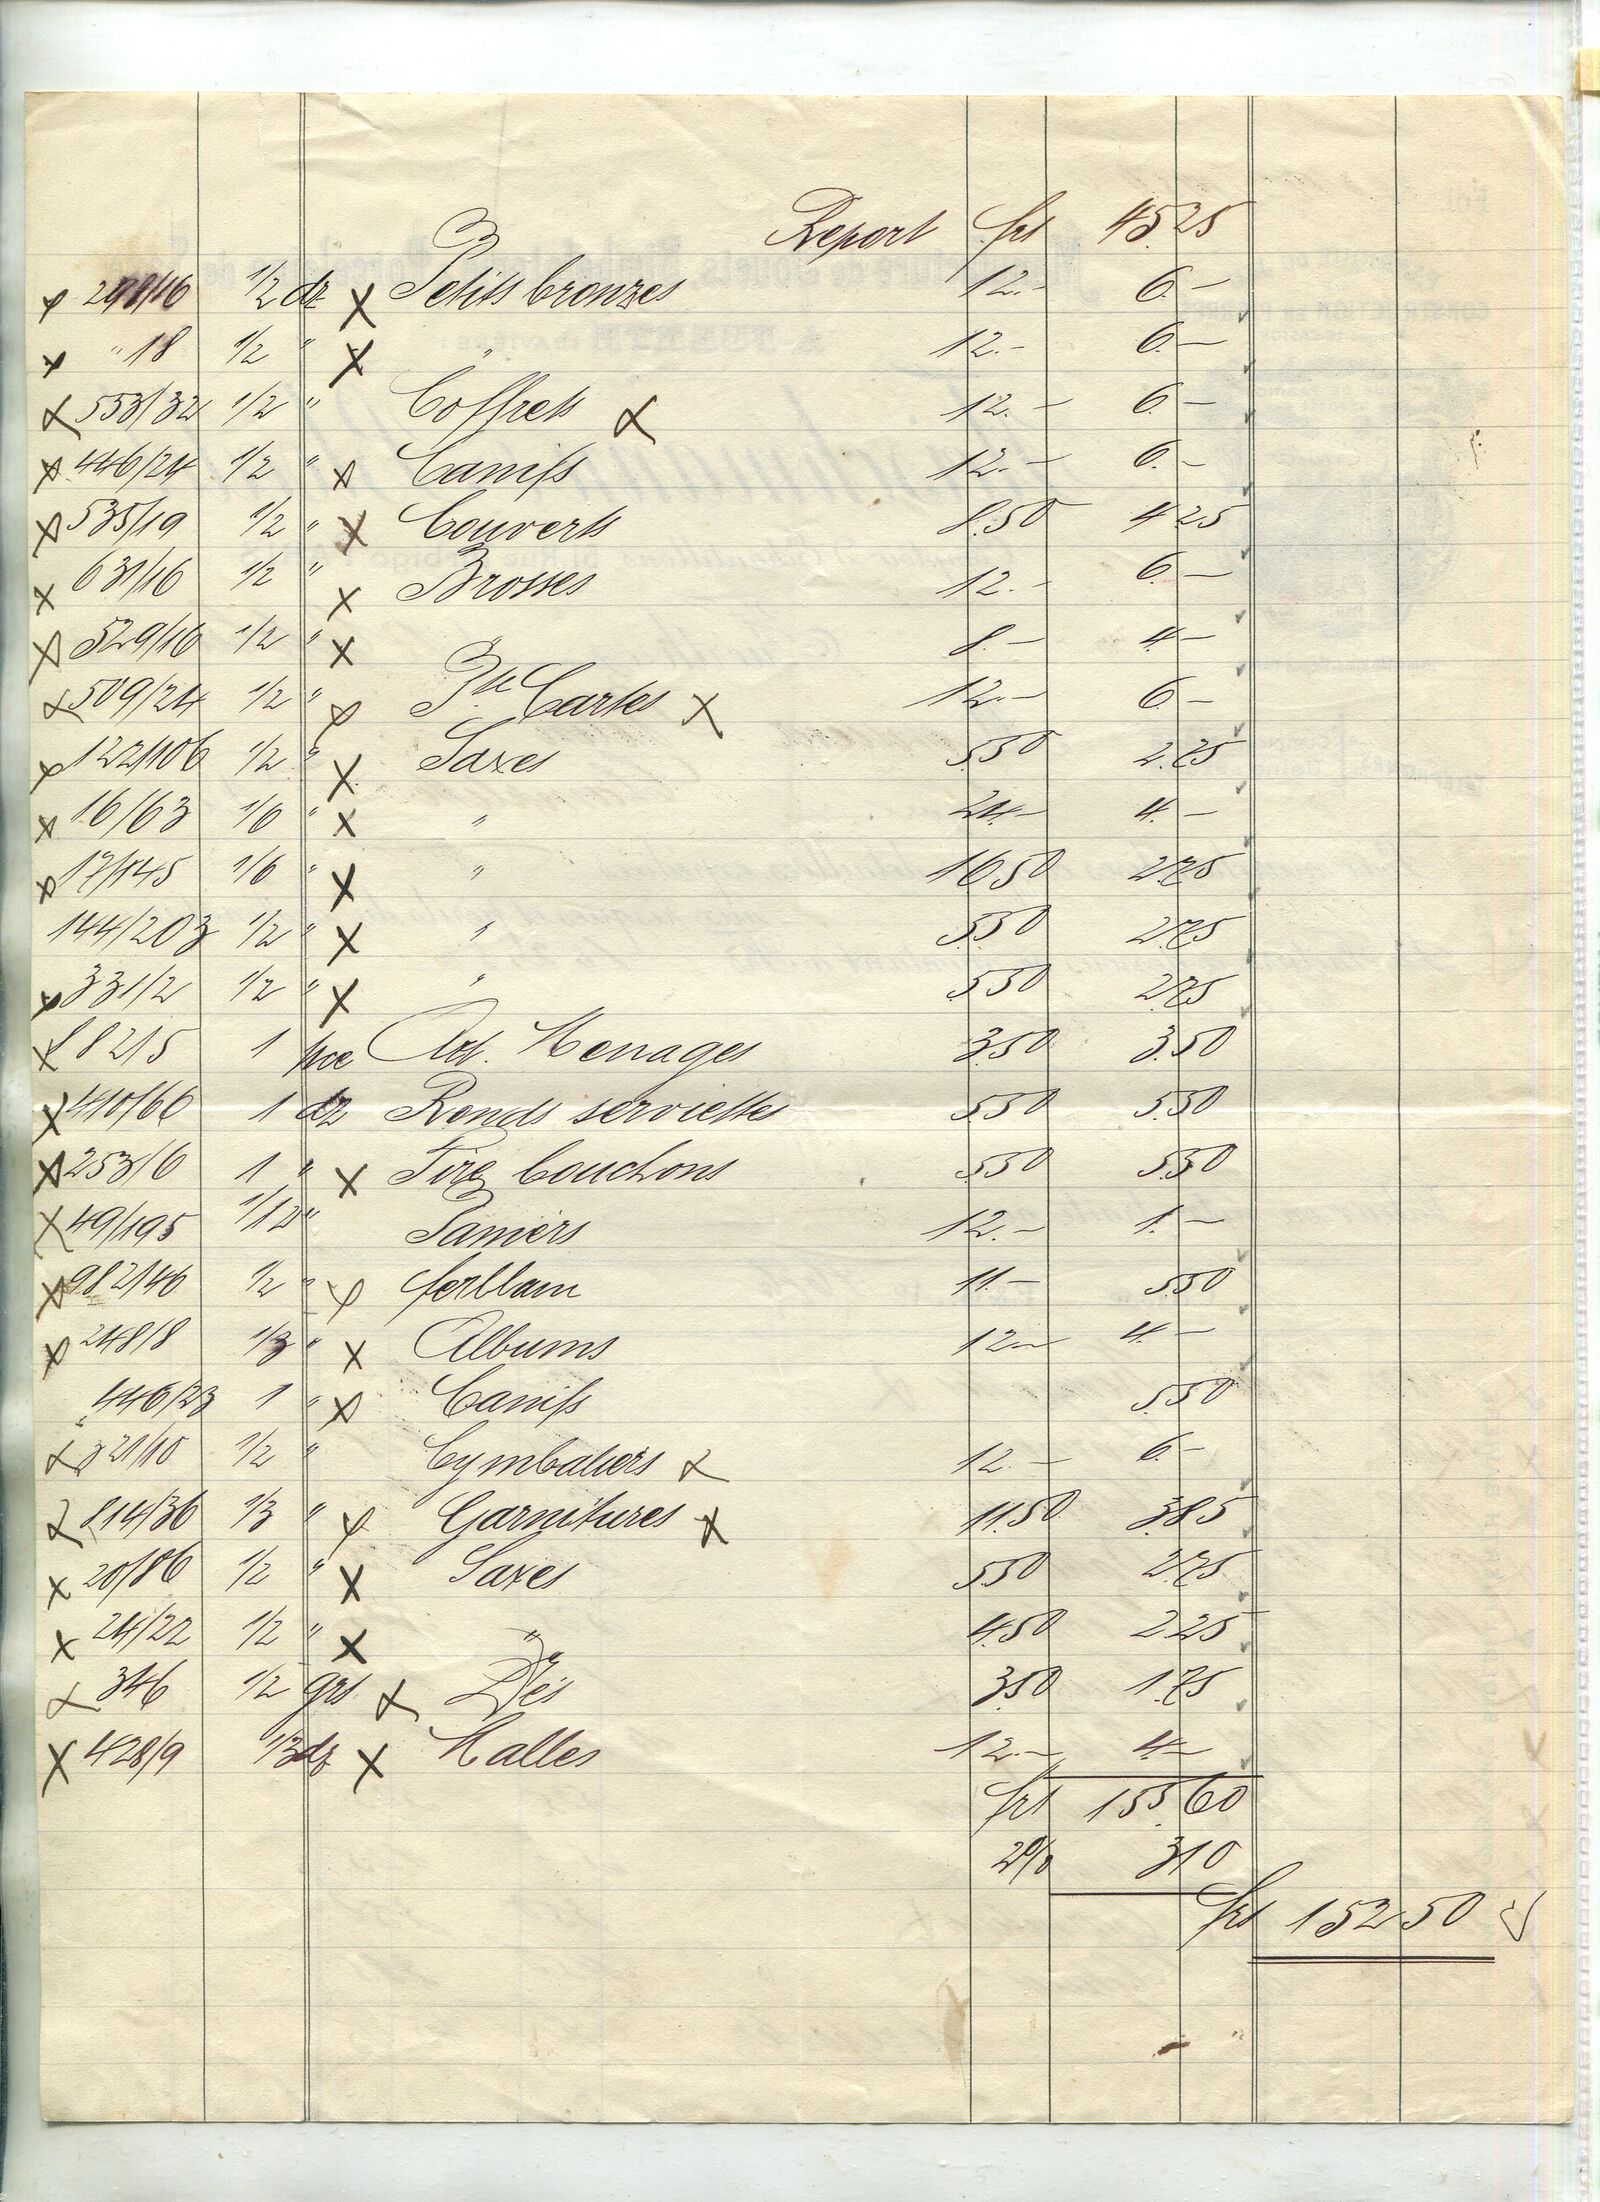 Report frs 45.25
298/16 1/2 dz Petits bronzes 12.- 6.-
" 18 1/2 " " 12.- 6.-
553/32 1/2 " Coffrets 12.- 6.-
446/24 1/2 " Canifs 12.- 6.-
535/19 1/2 " Couverts 8.50 4.25
631/16 1/2 " Brosses 12.- 6.-
529/16 1/2 " " 8.- 4.-
509/24 1/2 " Pte Cartes 12.- 6.-
122/106 1/2 " Saxes 5.50 2.75
16/63 1/6 " " 24.- 4.-
17/145 1/6 " " 16.50 2.75
144/203 1/2 " " 5.50 2.75
331/2 1/2 " " 5.50 2.75
821/5 1 pce Art. Menages 3.50 3.50
410/66 1 dz Ronds serviettes 5.50 5.50
253/6 1 " Tire bouchons 5.50 5.50
49/195 1/12 " Paniers 12.- 1.-
982/46 1/2 " ferblam 11.- 5.50
248/8 1/3 " Albums 12.- 4.-
446/23 1 " Canifs 5.50
321/10 1/2 " Cymbaliers 12.- 6.-
814/36 1/3 " Garnitures 11.50 3.85
20/86 1/2 " Saxes 5.50 2.75
24/22 1/2 " " 4.50 2.25
346 1/2 grs Dés 3.50 1.75
428/9 1/3 dz Malles 12.- 4.-
frs 155.60
2% 3.10
frs 152.50